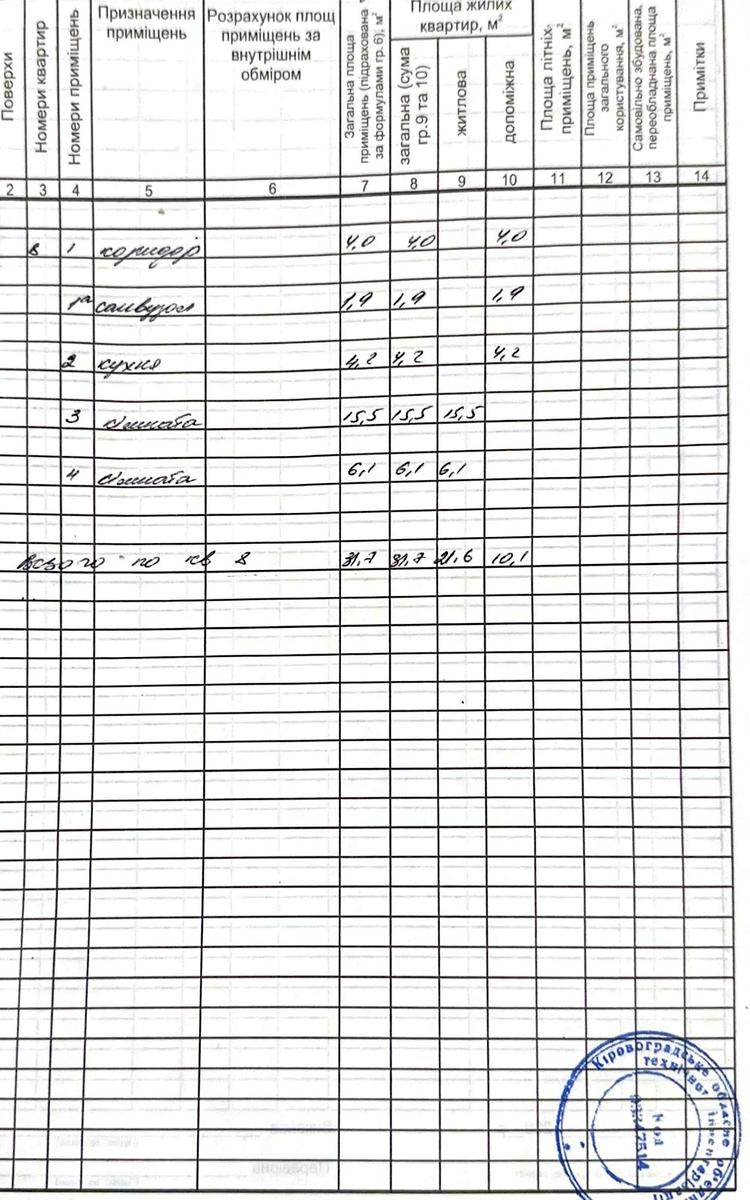 Поверхи
Номери квартир
Номери приміщень
Призначення приміщень
Розрахунок площ приміщень за внутрішнім обміром
Загальна площа приміщень (підрахована за формулами гр.6), м²
Площа жилих квартир, м²
загальна (сума гр.9 та 10)
житлова
допоміжна
Площа літніх приміщень, м²
Площа приміщень загального користування, м²
Самовільно збудована, переобладнана площа приміщень, м²
Примітки
2 3 4 5 6 7 8 9 10 11 12 13 14
8 1 коридор 4,0 4,0 4,0
1а санвузол 1,9 1,9 1,9
2 кухня 4,2 4,2 4,2
3 кімната 15,5 15,5 15,5
4 кімната 6,1 6,1 6,1
Всього по кв 8 31,7 31,7 21,6 10,1
Кіровоградське обласне об'єднання
технічної інвентаризації
Код